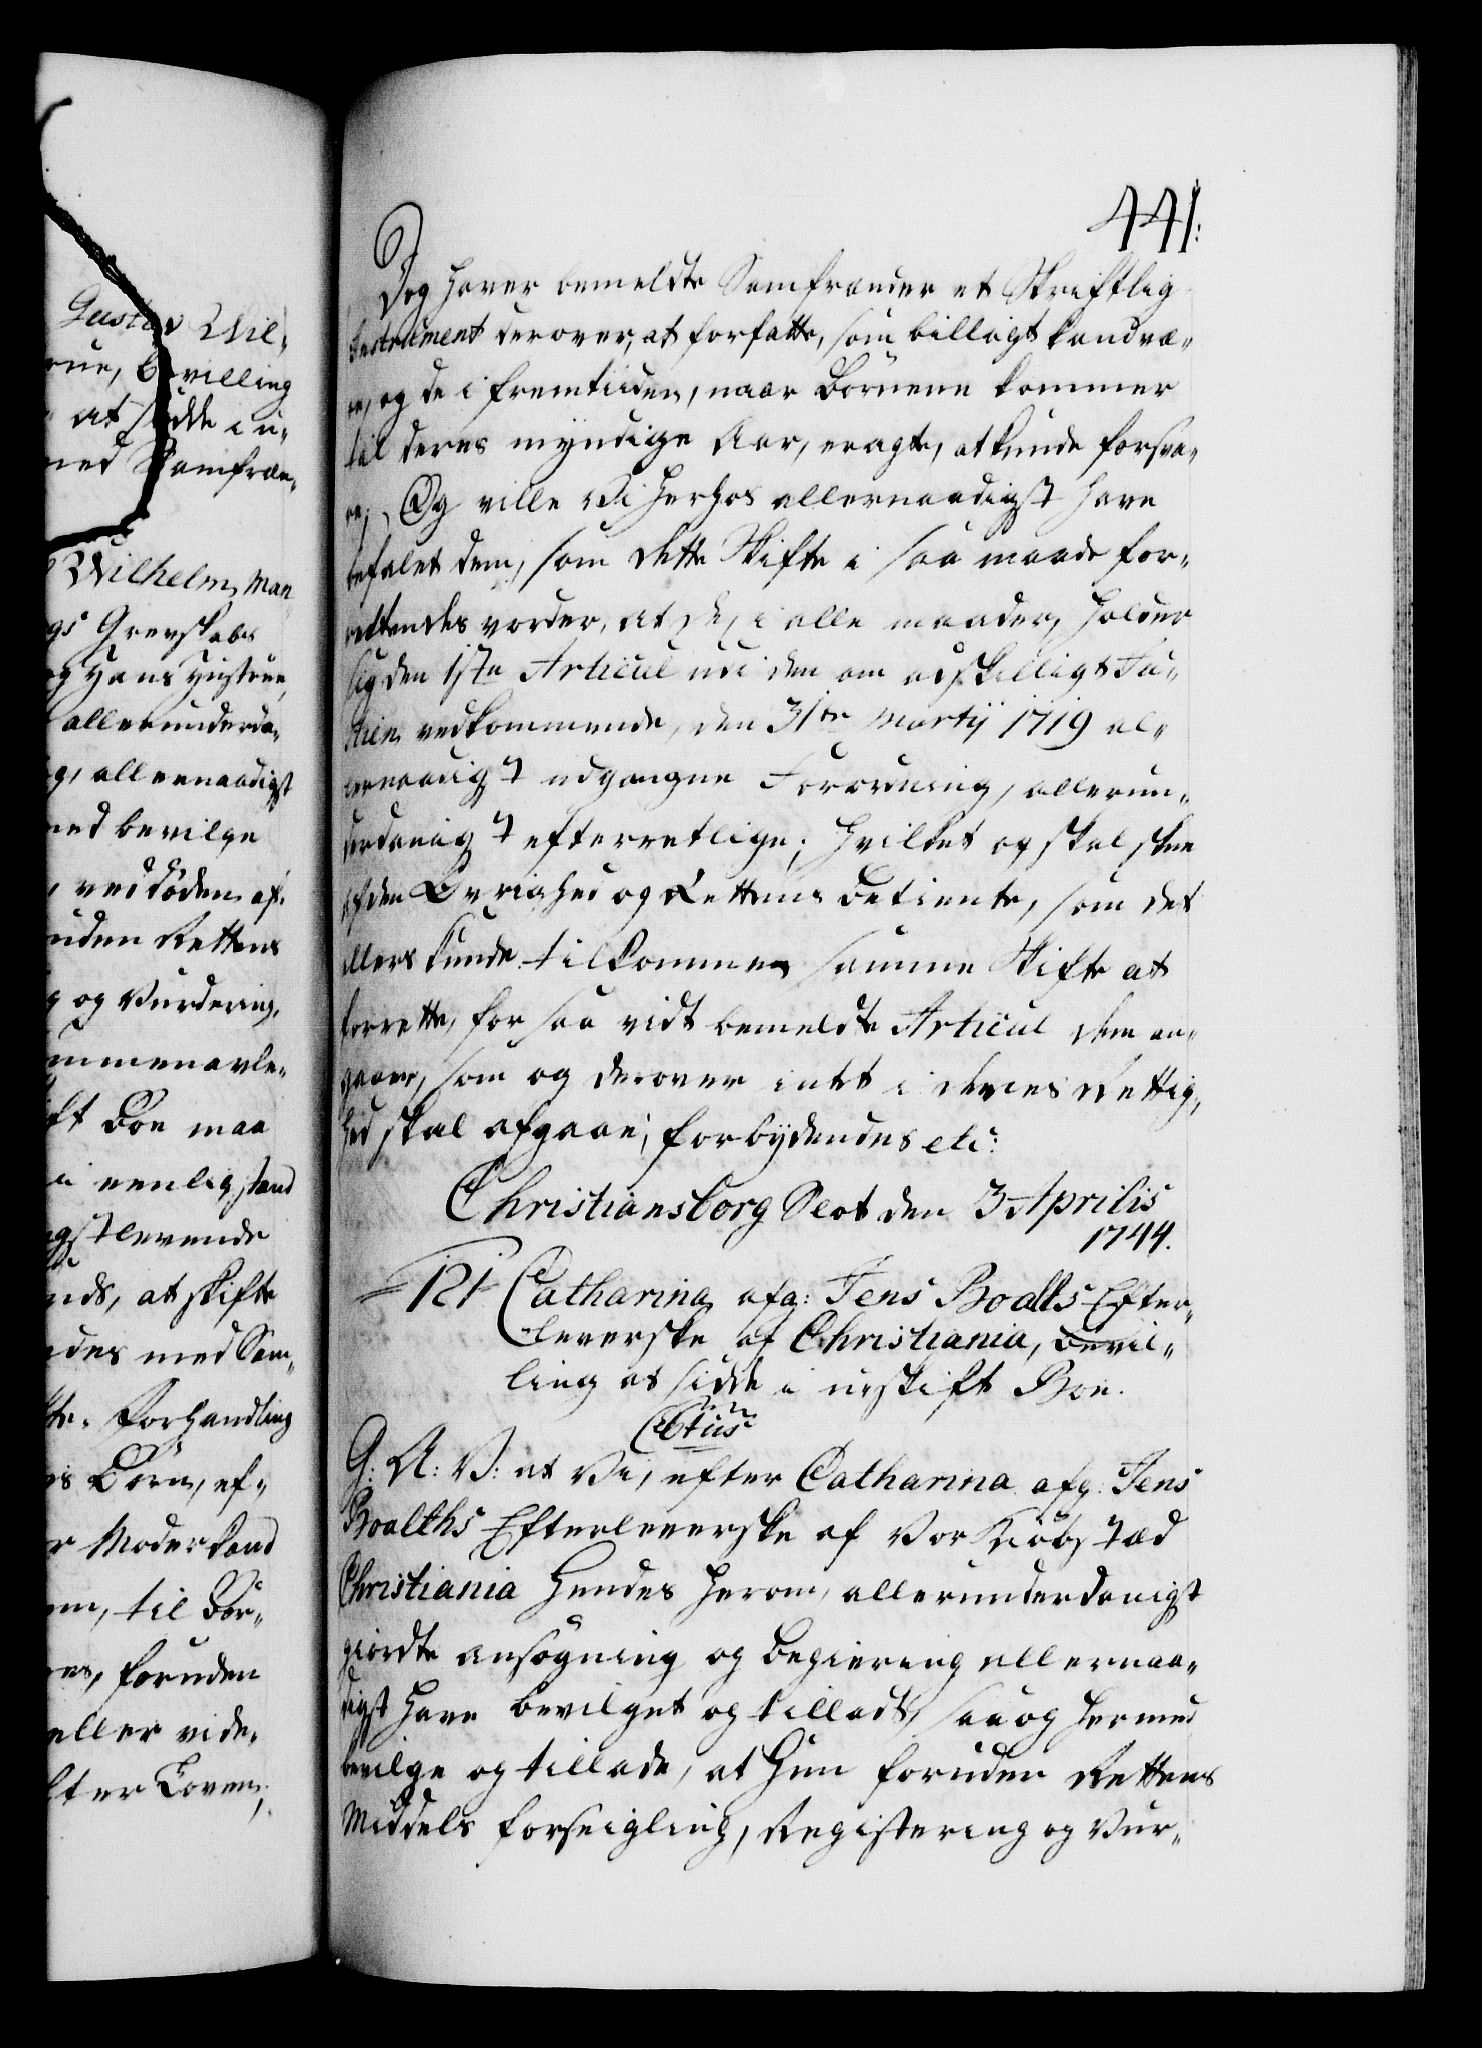 Gustav Wil-
rue, bevilling
at sidde i u-
med Samfræn-
Wilhelm Man
gs Grevskabs
og Hans Hustrue,
allerunderda-
g, allernaadigst
med bevilge
ved døden af-
uden Rettens
g og Vurdering,
ammenavle-
ift Boe maa
i eenlig stand
gstlevende
nds, at skifte
des med Sam-
te, Forhandling
is Børn, ef-
r Moder land
em, til Bør-
es, foruden
eller vide-
fter Loven;
441:
Dog haver bemeldte Samfrænder et Skriftlig
Instrument derover, at forfatte, som billigt kand væ-
re, og de i fremtiden, naar Børnene kommer
til deres myndige Aar, eragte, at kunde forsva-
re; Og ville Vi herhos allernaadigst have
befalet dem, som dette Skifte i saa maade for-
rettendes vorder, at de, i alle maader, holder
sig den 1ste Articul udi den om adskilligt Ju-
stien vedkommende, den 31te Martij 1719 al-
lernaadigst udgangne Forordning, allerun-
derdanigst efterretlige; hvilket og skal skee
af den Øvrighed og Rettens betiente, som det
ellers kunde tilkomme samme Skifte at
forrette, for saa vidt bemeldte Articul dem an-
gaaer, som og derover intet i deres Rettig-
hed skal afgaae, forbydendes etc:
Christiansborg Slot den 3 Aprilis
1744.
121 Catharina afg: Jens Boalts Efter-
leverske af Christiania, bevil-
ling at sidde i uskift Boe.
C6tus
G: A: V: at Vi, efter Catharina afg: Jens
Boalths Efterleverske af Vor Kiøbstæd
Christiania Hendes herom, allerunderdanigst
giordte ansøgning og begiering allernaa-
digst have bevilget og tilladt, saa og hermed
bevilge og tillade, at Hun foruden Rettens
Middels forseigling, Registering og Vur-